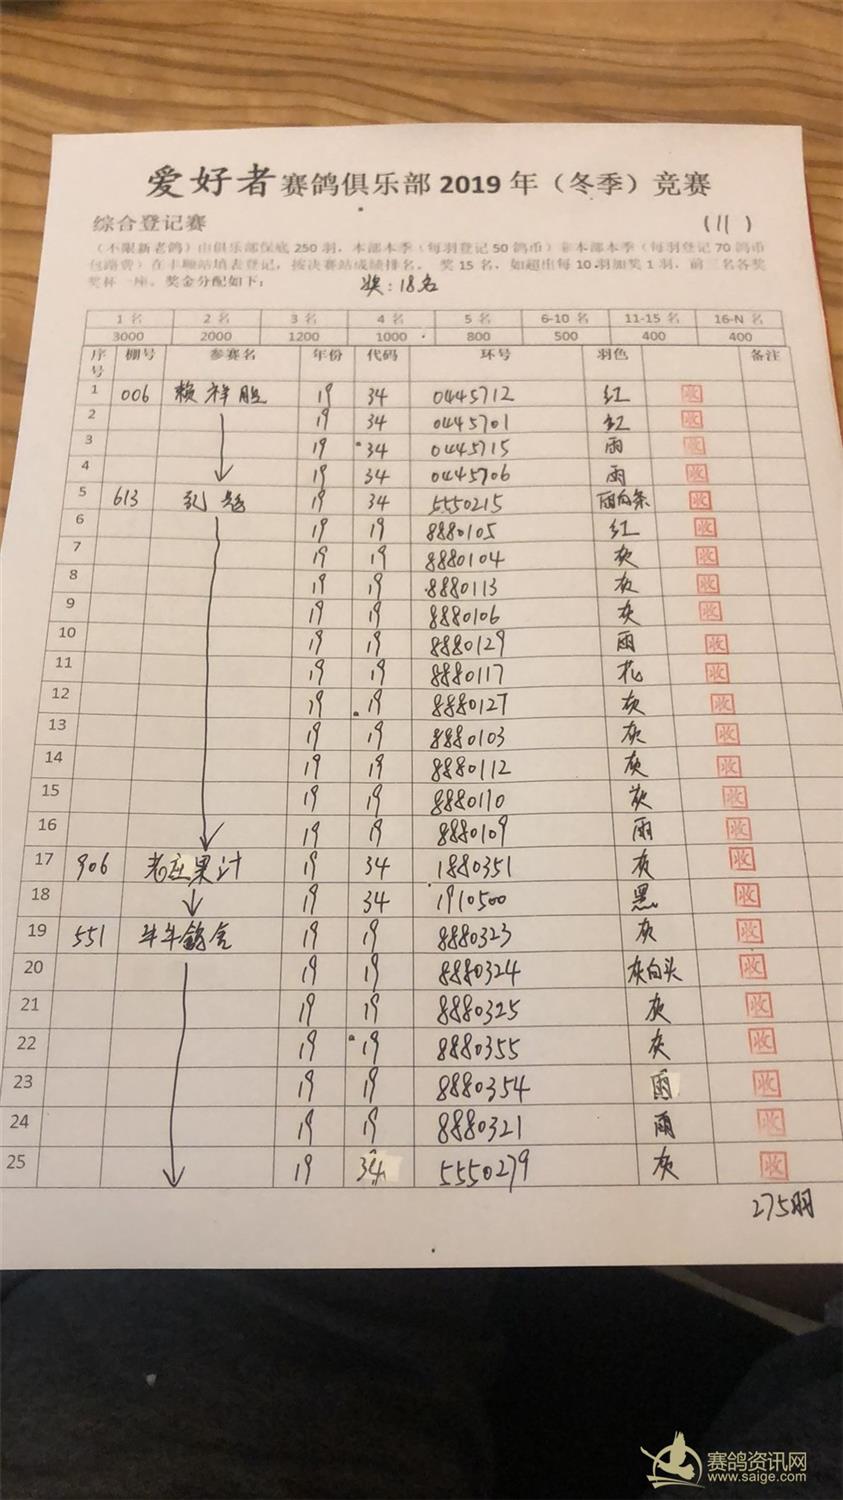 爱好者赛鸽俱乐部2019年（冬季）竞赛
综合登记赛 (11)
（不限新老鸽）由俱乐部保底250羽，本部本季（每羽登记50鸽币）非本部本季（每羽登记70鸽币
包路费）在丰顺站填表登记，按决赛站成绩排名。 奖15名，如超出每10羽加奖1羽，前三名各奖
奖杯一座。奖金分配如下： 奖：18名
1名 2名 3名 4名 5名 6-10名 11-15名 16-N名
3000 2000 1200 1000 800 500 400 400
序号 棚号 参赛名 年份 代码 环号 羽色 备注
1 006 赖祥胜 19 34 0445712 红 收
2 19 34 0445701 红 收
3 19 34 0445715 雨 收
4 19 34 0445706 雨 收
5 613 19 34 5550215 雨白条 收
6 19 19 8880105 红 收
7 19 19 8880104 灰 收
8 19 19 8880113 灰 收
9 19 19 8880106 灰 收
10 19 19 8880129 雨 收
11 19 19 8880117 花 收
12 19 19 8880127 灰 收
13 19 19 8880103 灰 收
14 19 19 8880112 灰 收
15 19 19 8880110 灰 收
16 19 19 8880109 雨 收
17 906 老庄果计 19 34 1880351 灰 收
18 19 34 1910500 黑 收
19 551 19 19 8880323 灰 收
20 19 19 8880324 灰白头 收
21 19 19 8880325 灰 收
22 19 19 8880355 灰 收
23 19 19 8880354 雨 收
24 19 19 8880321 雨 收
25 19 34 5550279 灰 收
275羽
赛鸽资讯网
www.saige.com